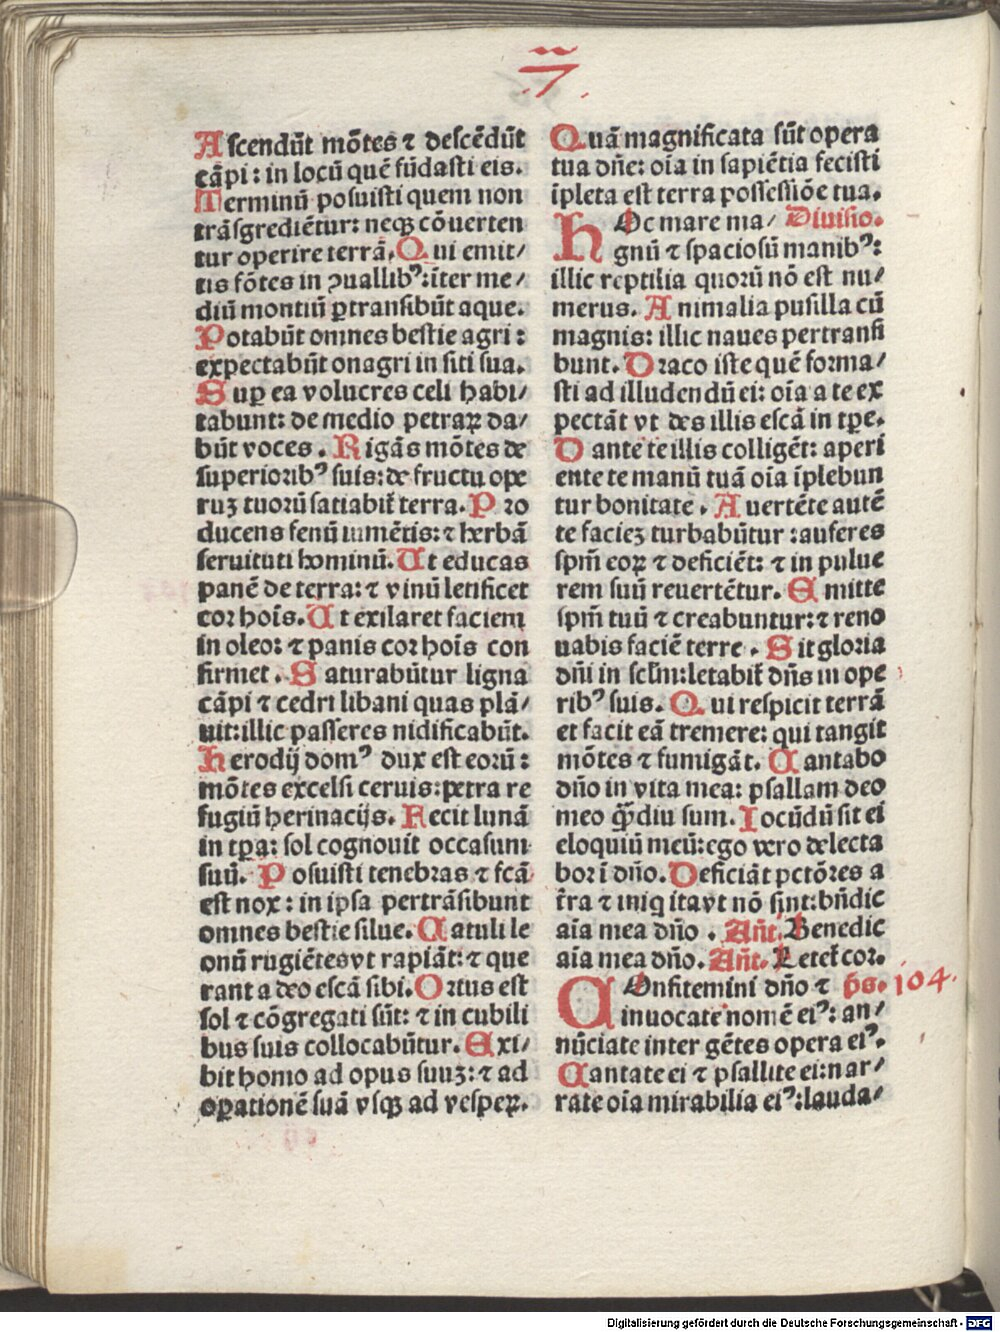 Ascendūt mōtes ⁊ descēdūt
cāpi: in locū quē fūdasti eis.
Terminū posuisti quem non
trāsgrediētur: neqꝫ cōuerten
tur operire terrā. Qui emit/
tis fōtes in ꝯuallibꝰ: īter me/
diū montiū ꝑtransibūt aque.
Potabūt omnes bestie agri:
expectabūt onagri in siti sua.
Suꝑ ea volucres celi habi/
tabunt: de medio petraꝝ da/
būt voces. Rigās mōtes de
superioribꝰ suis: de fructu ope
ruꝫ tuorū satiabit̃ terra. Pro
ducens fenū iumētis: ⁊ herbā
seruituti hominū. Ut educas
panē de terra: ⁊ vinū letificet
cor hoīs. Ut exilaret faciem
in oleo: ⁊ panis cor hoīs con
firmet. Saturabūtur ligna
cāpi ⁊ cedri libani quas plā/
uit: illic passeres nidificabūt.
Herodij domꝰ dux est eorū:
mōtes excelsi ceruis: petra re
fugiū herinacijs. Fecit lunā
in tꝑa: sol cognouit occasum
suū. Posuisti tenebras ⁊ fcā
est nox: in ipsa pertrāsibunt
omnes bestie silue. Catuli le
onū rugiētes vt rapiāt: ⁊ que
rant a deo escā sibi. Ortus est
sol ⁊ cōgregati sūt: ⁊ in cubili
bus suis collocabūtur. Exi/
bit homo ad opus suuꝫ: ⁊ ad
oꝑationē suā vsqꝫ ad vesꝑeꝝ.
Quā magnificata sūt opera
tua dn̄e: oīa in sapiētia fecisti
īpleta est terra possessiōe tua.
Hoc mare ma/ Diuisio.
gnū ⁊ spaciosū manibꝰ:
illic reptilia quorū nō est nu/
merus. Animalia pusilla cū
magnis: illic naues pertransi
bunt. Draco iste quē forma/
sti ad illudendū ei: oīa a te ex
pectāt vt des illis escā in tꝑe.
Dante te illis colligēt: aperi
ente te manū tuā oīa īplebun
tur bonitate. Auertēte autē
te facieꝫ turbabūtur: auferes
spm̄ eoꝝ ⁊ deficiēt: ⁊ in pulue
rem suū reuertētur. Emitte
spm̄ tuū ⁊ creabuntur: ⁊ reno
uabis faciē terre. Sit gloria
dn̄i in sclm̄: letabit̃ dn̄s in ope
ribꝰ suis. Qui respicit terrā
et facit eā tremere: qui tangit
mōtes ⁊ fumigāt. Cantabo
dn̄o in vita mea: psallam deo
meo q̄ꝫdiu sum. Iocūdū sit ei
eloquiū meū: ego vero delecta
bor ī dn̄o. Deficiāt pctōres a
t̃ra ⁊ iniq ita vt nō sint: bn̄dic
aīa mea dn̄o. Añt. Benedic
aīa mea dn̄o. Añt. Letet̃ cor.
Confitemini dn̄o ⁊ ps. 104.
inuocate nomē eiꝰ: an/
nūciate inter gētes opera eiꝰ.
Cantate ei ⁊ psallite ei: nar/
rate oīa mirabilia eiꝰ: lauda/
Digitalisierung gefördert durch die Deutsche Forschungsgemeinschaft - DFG